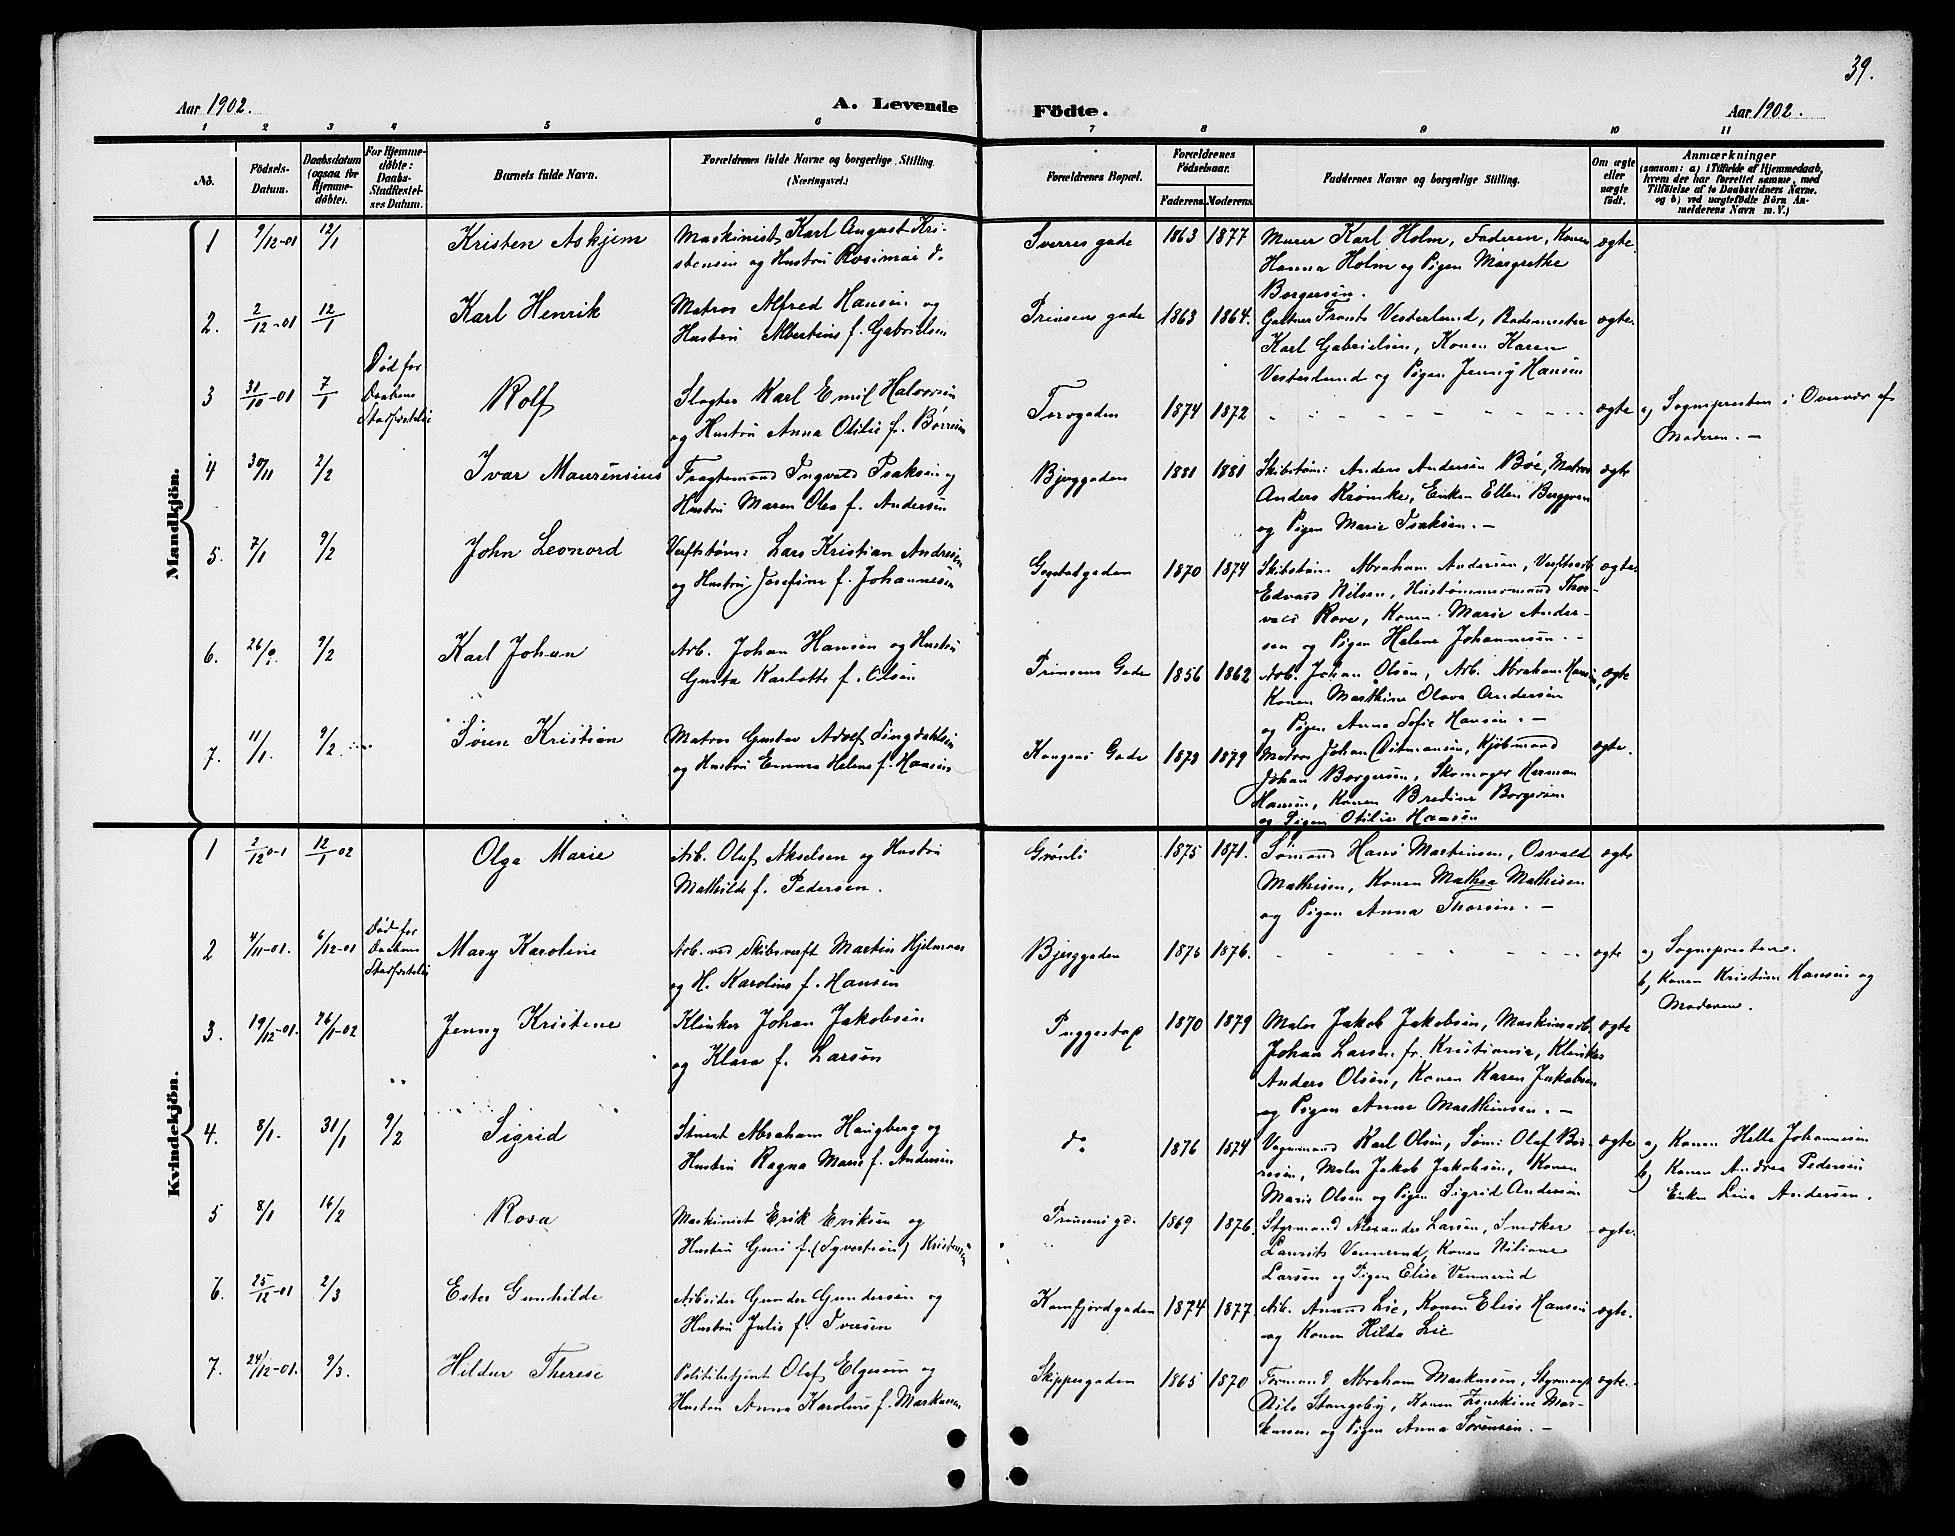 39.
Aar 1902. A. Levende Födte. Aar 1902.
1 2 3 4 5 6 7 8 9 10 11
No. Födsels-Datum. Daabsdatum (ogsaa for Hjemmedöbte). For Hjemmedöbte: Daabs-Stadfæstelses Datum. Barnets fulde Navn. Forældrenes fulde Navne og borgerlige Stilling. (Næringsvei.) Forældrenes Bopæl. Forældrenes Födselsaar. Faderens. Moderens. Faddernes Navne og borgerlige Stilling. Om ægte eller uægte födt. Anmærkninger (saasom: a) i Tilfælde af Hjemmedaab, hvem der har forrettet samme, med Tilföielse af to Daabsvidners Navne, og b) ved uægtefödte Börn Anmelderens Navn m. V.)
Mandkjön.
1 9/12-01 12/1 Kristen Askjem Maskinist Karl August Kri- Sverres gade 1863 1877 Murer Karl Holm, Faderen, Konen ægte
stensen og Hustru Rosimai do Hanna Holm og Pigen Margrethe
Borgersen.
2. 2/12-01 12/1 Karl Henrik Matros Alfred Hansen og Prinsens gade 1863 1864. Gartner Frants Vesterlund, Badem​ester ægte.
Hustru Albertine f. Gabrielsen Karl Gabrielsen, Konen Karen
Vesterlund og Pigen Jenny Hansen
3 31/10-01 7/1 Død før Daabens Stadfæstelse Rolf Slagter Karl Emil Halvorsen Torvgaden 1874 1872 ægte a) Sognepresten i Overvær af
og Hustru Anna Otilie f. Børresen Moderen. —
4 30/11 2/2 Ivar Maurensius Fragtemand Ingvald Isaksen og Bjerggaden 1881 1881 Skibstøm: Anders Andersen Bøe, Matros ægte
Hustru Maren Olea f. Andersen Anders Krømke, Enken Ellen Berggren
og Pigen Marie Isaksen. —
5. 7/1 9/2 John Leonord Verftstøm: Lars Kristian Andresen Gogstadgaden 1870 1874 Skibstøm. Abraham Andersen, ægte.
og Hustru Josefine f. Johannesen Edvard Nilsen, Hustømmermand Thor-
vald Rove, Konen Marie Ander-
sen og Pigen Helene Johannesen. —
6. 26/9. 9/2 Karl Johan Arb. Johan Hansen og Hustru Prinsens Gade 1856 1862 Arb. Johan Olsen, Arb. Abraham Hansen, ægte
Gusta Karlotte f. Olsen Konen Marthine Olava Andersen
og Pigen Anna Sofie Hansen. —
7. 11/1. 9/2 Søren Kristian Matros Gustav Adolf Lingdahlsen Kongens Gade 1873 1879 Matros Johan Ditmansen, Kjøbmand ægte.
og Hustru Emma Helene f. Hansen Johan Borgersen, Skomager Herman
Hansen, Konen Bredine Borgersen
og Pigen Otilie Hansen
Kvindekjön.
1 2/12 0-1 12/1-02 Olga Marie Arb. Oluf Akselsen og Hustru Grønli 1875 1871. Sømand Hans Martinsen, Osvald ægte
Mathilde f. Pedersen. Mathisen, Konen Mathea Mathisen
og Pigen Anna Thorsen. —
2 4/11-01. 6/12-01 Død før Daabens Stadfæstelse Mary Karoline Arb. ved Skibsverft Martin Hjelmaas Bjerggaden 1875 1876. ægte a) Sognepresten.
og H. Karoline f. Hansen b) Konen Kristine Hansen og
Moderen.
3. 19/12-01. 26/1-02 Jenny Kristene Klinker Johan Jakobsen Puggestap 1870 1879 Maler Jakob Jakobsen, Maskinarb. ægte
og Klara f. Larsen Johan Larsen fr. Kristiania, Klinker
Anders Olsen, Konen Karen Jakobsen
og Pigen Anne Marthinsen. —
4. 8/1. 31/1 9/2 Sigrid Stuert Abraham Haugberg og do 1876 1874 Vognmand Karl Olsen, Søm: Olaf Bør- ægte a) Konen Helle Johannesen
Hustru Ragna Marie f. Andersen resen, Maler Jakob Jakobsen, Konen b) Konen Andrea Pedersen
Marie Olsen og Pigen Sigrid Andersen Enken Lina Andersen.
5 8/1 16/2 Rosa Maskinist Erik Eriksen og Prinsensgd. 1869 1876. Styrmand Alexander Larsen, Snedker ægte.
Hustru Guri f. (Syvertsen) Kristensen Laurits Vennerud, Konen Nitiane
Larsen og Pigen Elise Vennerud
6. 25/12-01 2/3 Ester Gunhilde Arbeider Gunder Gundersen og Kamfjordgaden 1874 1877. Arb. Amund Lie, Konen Elise Hansen ægte.
Hustru Julie f. Iversen og Konen Hilda Lie
7. 24/12-01. 9/3. Hildur Therese Politibetjent Olaf Elgesem og Skippergaden 1865 1870 Formand Abraham Markussen, Styrmand ægte.
Hustru Anna Karoline f. Markussen Nils Stangeby, Konen Mar-
kussen og Pigen Anna Sørensen. —